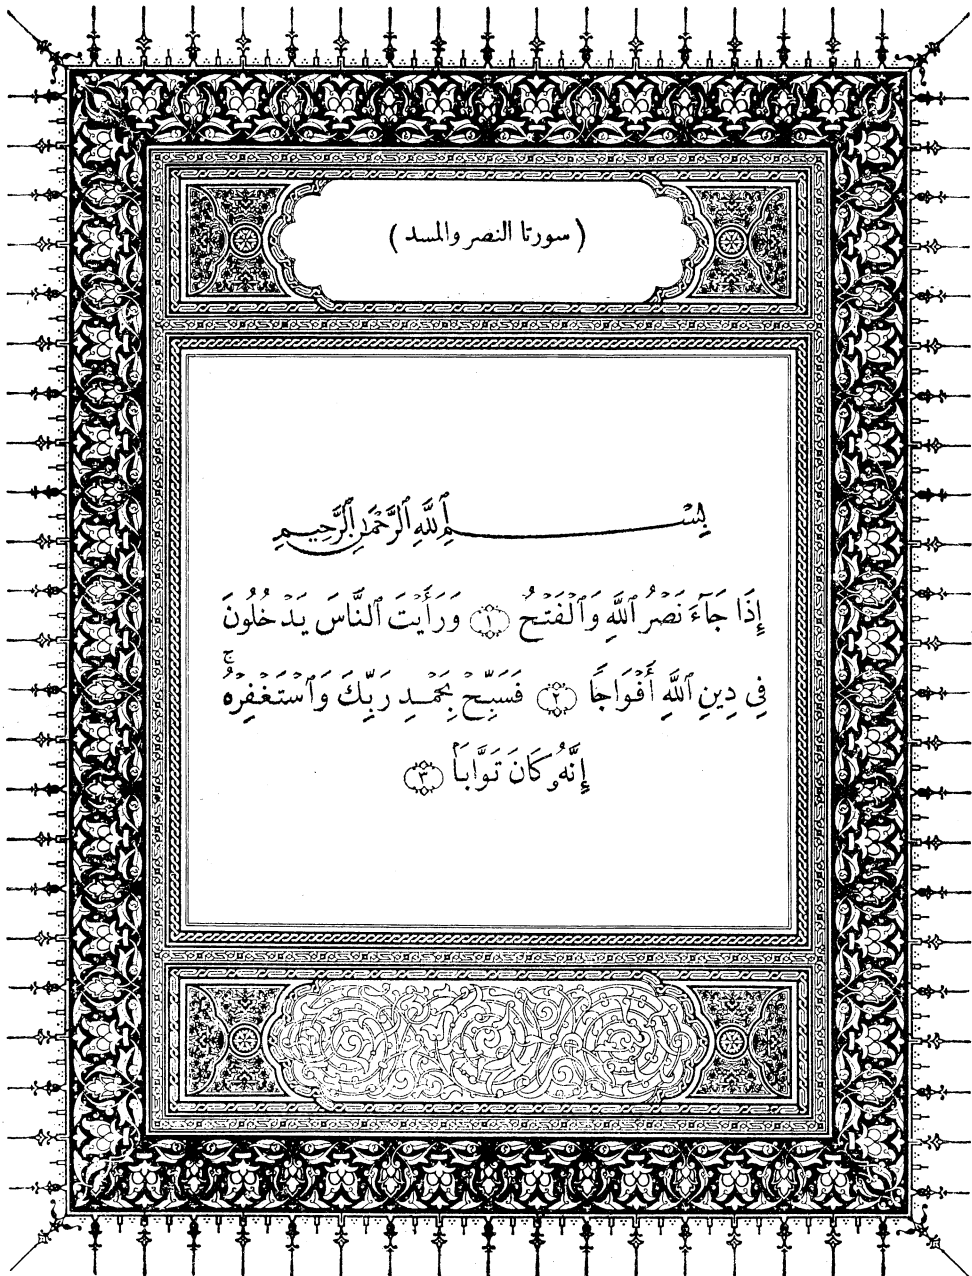 ( سورتا النصر والمسد )
بِسْمِ ٱللَّهِ ٱلرَّحْمَٰنِ ٱلرَّحِيمِ
إِذَا جَآءَ نَصْرُ ٱللَّهِ وَٱلْفَتْحُ ١ وَرَأَيْتَ ٱلنَّاسَ يَدْخُلُونَ
فِي دِينِ ٱللَّهِ أَفْوَاجًا ٢ فَسَبِّحْ بِحَمْدِ رَبِّكَ وَٱسْتَغْفِرْهُۚ
إِنَّهُۥ كَانَ تَوَّابَۢا ٣